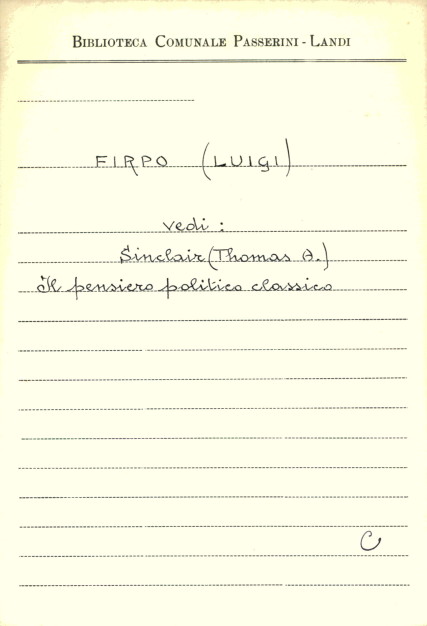 BIBLIOTECA COMUNALE PASSERINI - LANDI
FIRPO (LUIGI)
vedi :
Sinclair (Thomas A.)
Il pensiero politico classico
C